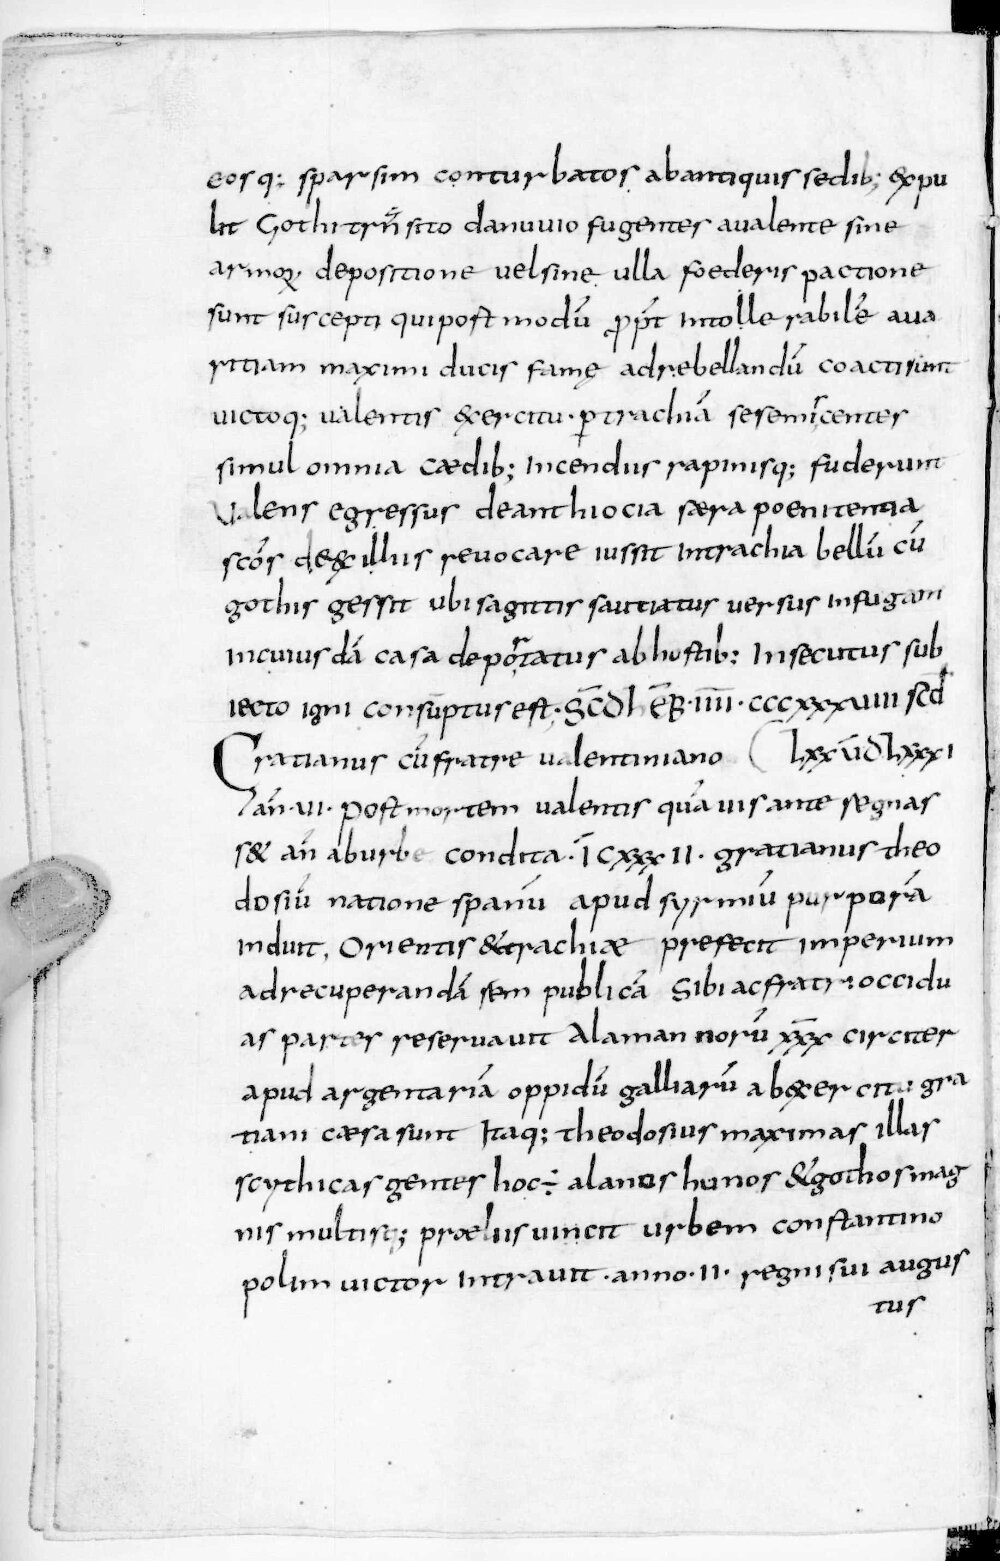 eosq; sparsim conturbatos abantiquis sedib; &xpu
lit Gothi trñsito danuvio fugentes aualente sine
armoꝝ depositione uelsine ulla foederis pactione
sunt suscepti quipostmodū ꝓpt̄ intollerabilē aua
ritiam maximi ducis famę adrebellandū coactisunt
uictoq; ualentis &xercitu · ꝑtrachiā sesemiscentes
simul omnia cædib; Incendiis rapinisq; fuderunt
Valens egressus deanthiocia særa poenitentia
scōs de&xiliis reuocare iussit Intrachia bellū cū
gothis gessit ubisagittis sautiatus uersus infugam
incuiusdā casa deportatus abhostib; Insecutus sub
iecto igni consūptus est · S̄c̄dh̄ēR̄ · īīīī · cccxxxuiiii sc̄d
Gratianus cūfratre ualentiniano lxxūdlxxxi
an̄ · ui · postmortem ualentis quā uis ante segnas
s& an̄ aburbe condita · ī cxxxii · gratianus theo
dosiū natione spanū apud syrmiū purpurā
induit, Orientis &trachiæ prefecit imperium
adrecuperandā rem publicā Sibi acfratri occidu
as partes reseruauit Alamannorū x̄x̄x̄ circiter
apud argentariā oppidū galliarū ab&xercitu gra
tiani cæsa sunt Itaq; theodosius maximas illas
scythicas gentes hoc ÷ alanos hunos &gothos mag
nis multisq; prœliis uincit urbem constantino
polim uictor Intrauit · anno · ii · regni sui augus
tus